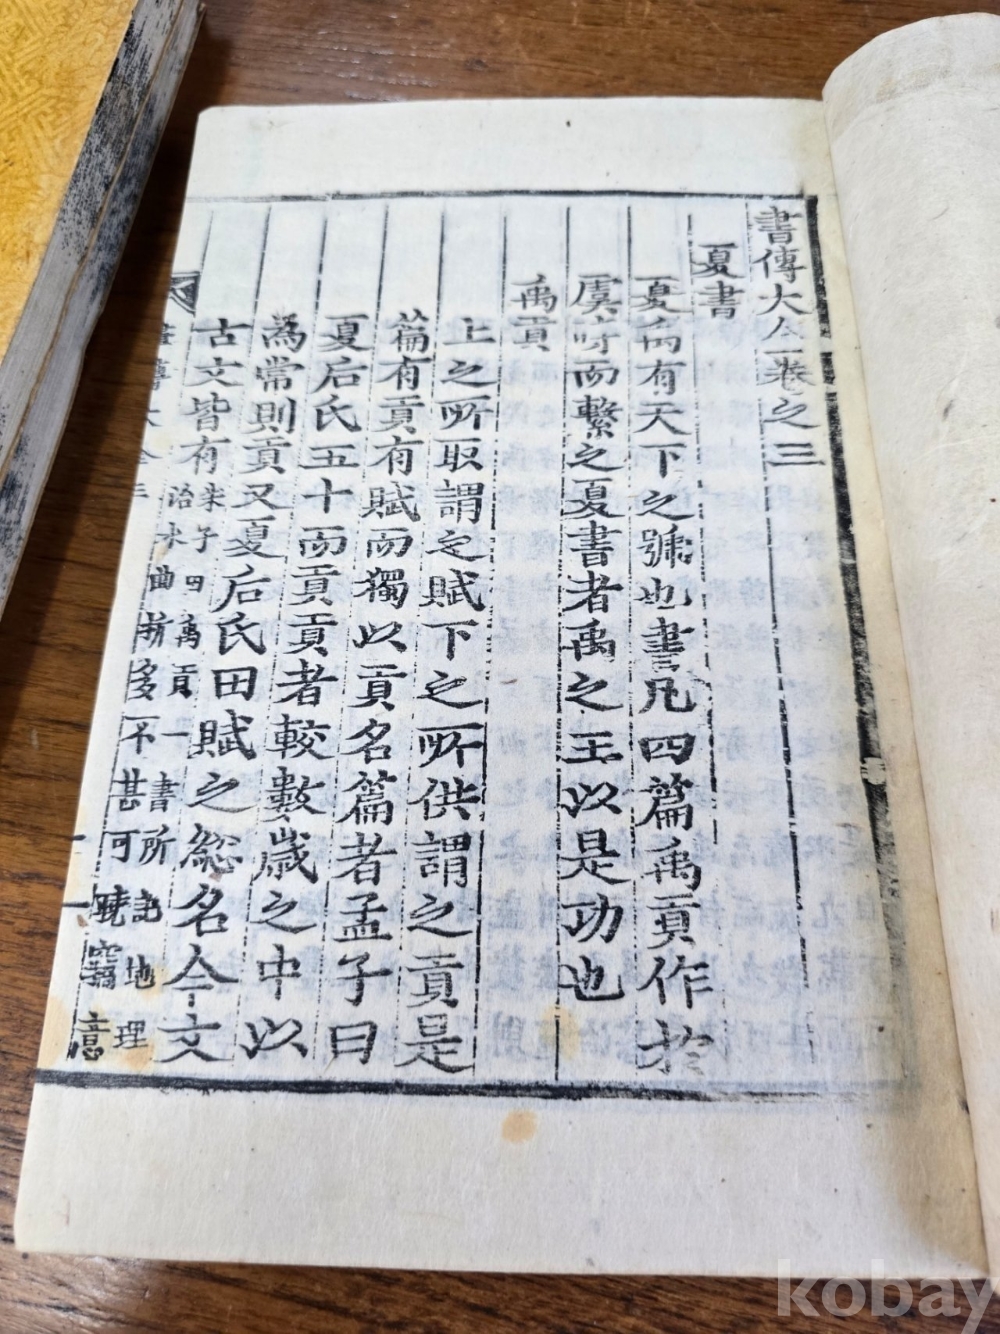 書傳大全卷之三
夏書
夏禹有天下之號也書凡四篇禹貢作於
虞時而繫之夏書者禹之王以是功也
禹貢
上之所取謂之賦下之所供謂之貢是
篇有貢有賦而獨以貢名篇者孟子曰
夏后氏五十而貢貢者較數歲之中以
為常則貢又夏后氏田賦之總名今文
古文皆有
朱子曰禹貢一書所記地理
治水曲折多不甚可曉竊意
書傳大全三
kobay